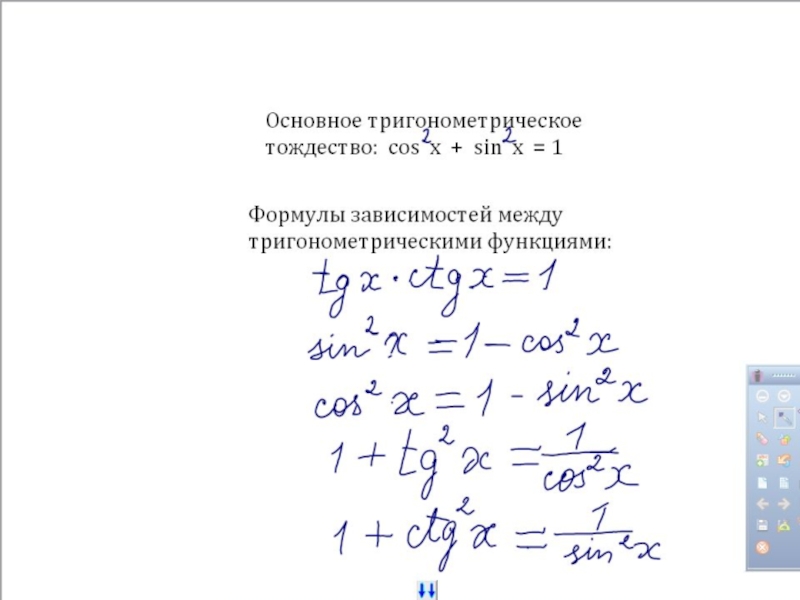 Основное тригонометрическое
тождество: cos²x + sin²x = 1
Формулы зависимостей между
тригонометрическими функциями:
tgx · ctgx = 1
sin²x = 1 − cos²x
cos²x = 1 - sin²x
1 + tg²x = 1/cos²x
1 + ctg²x = 1/sin²x